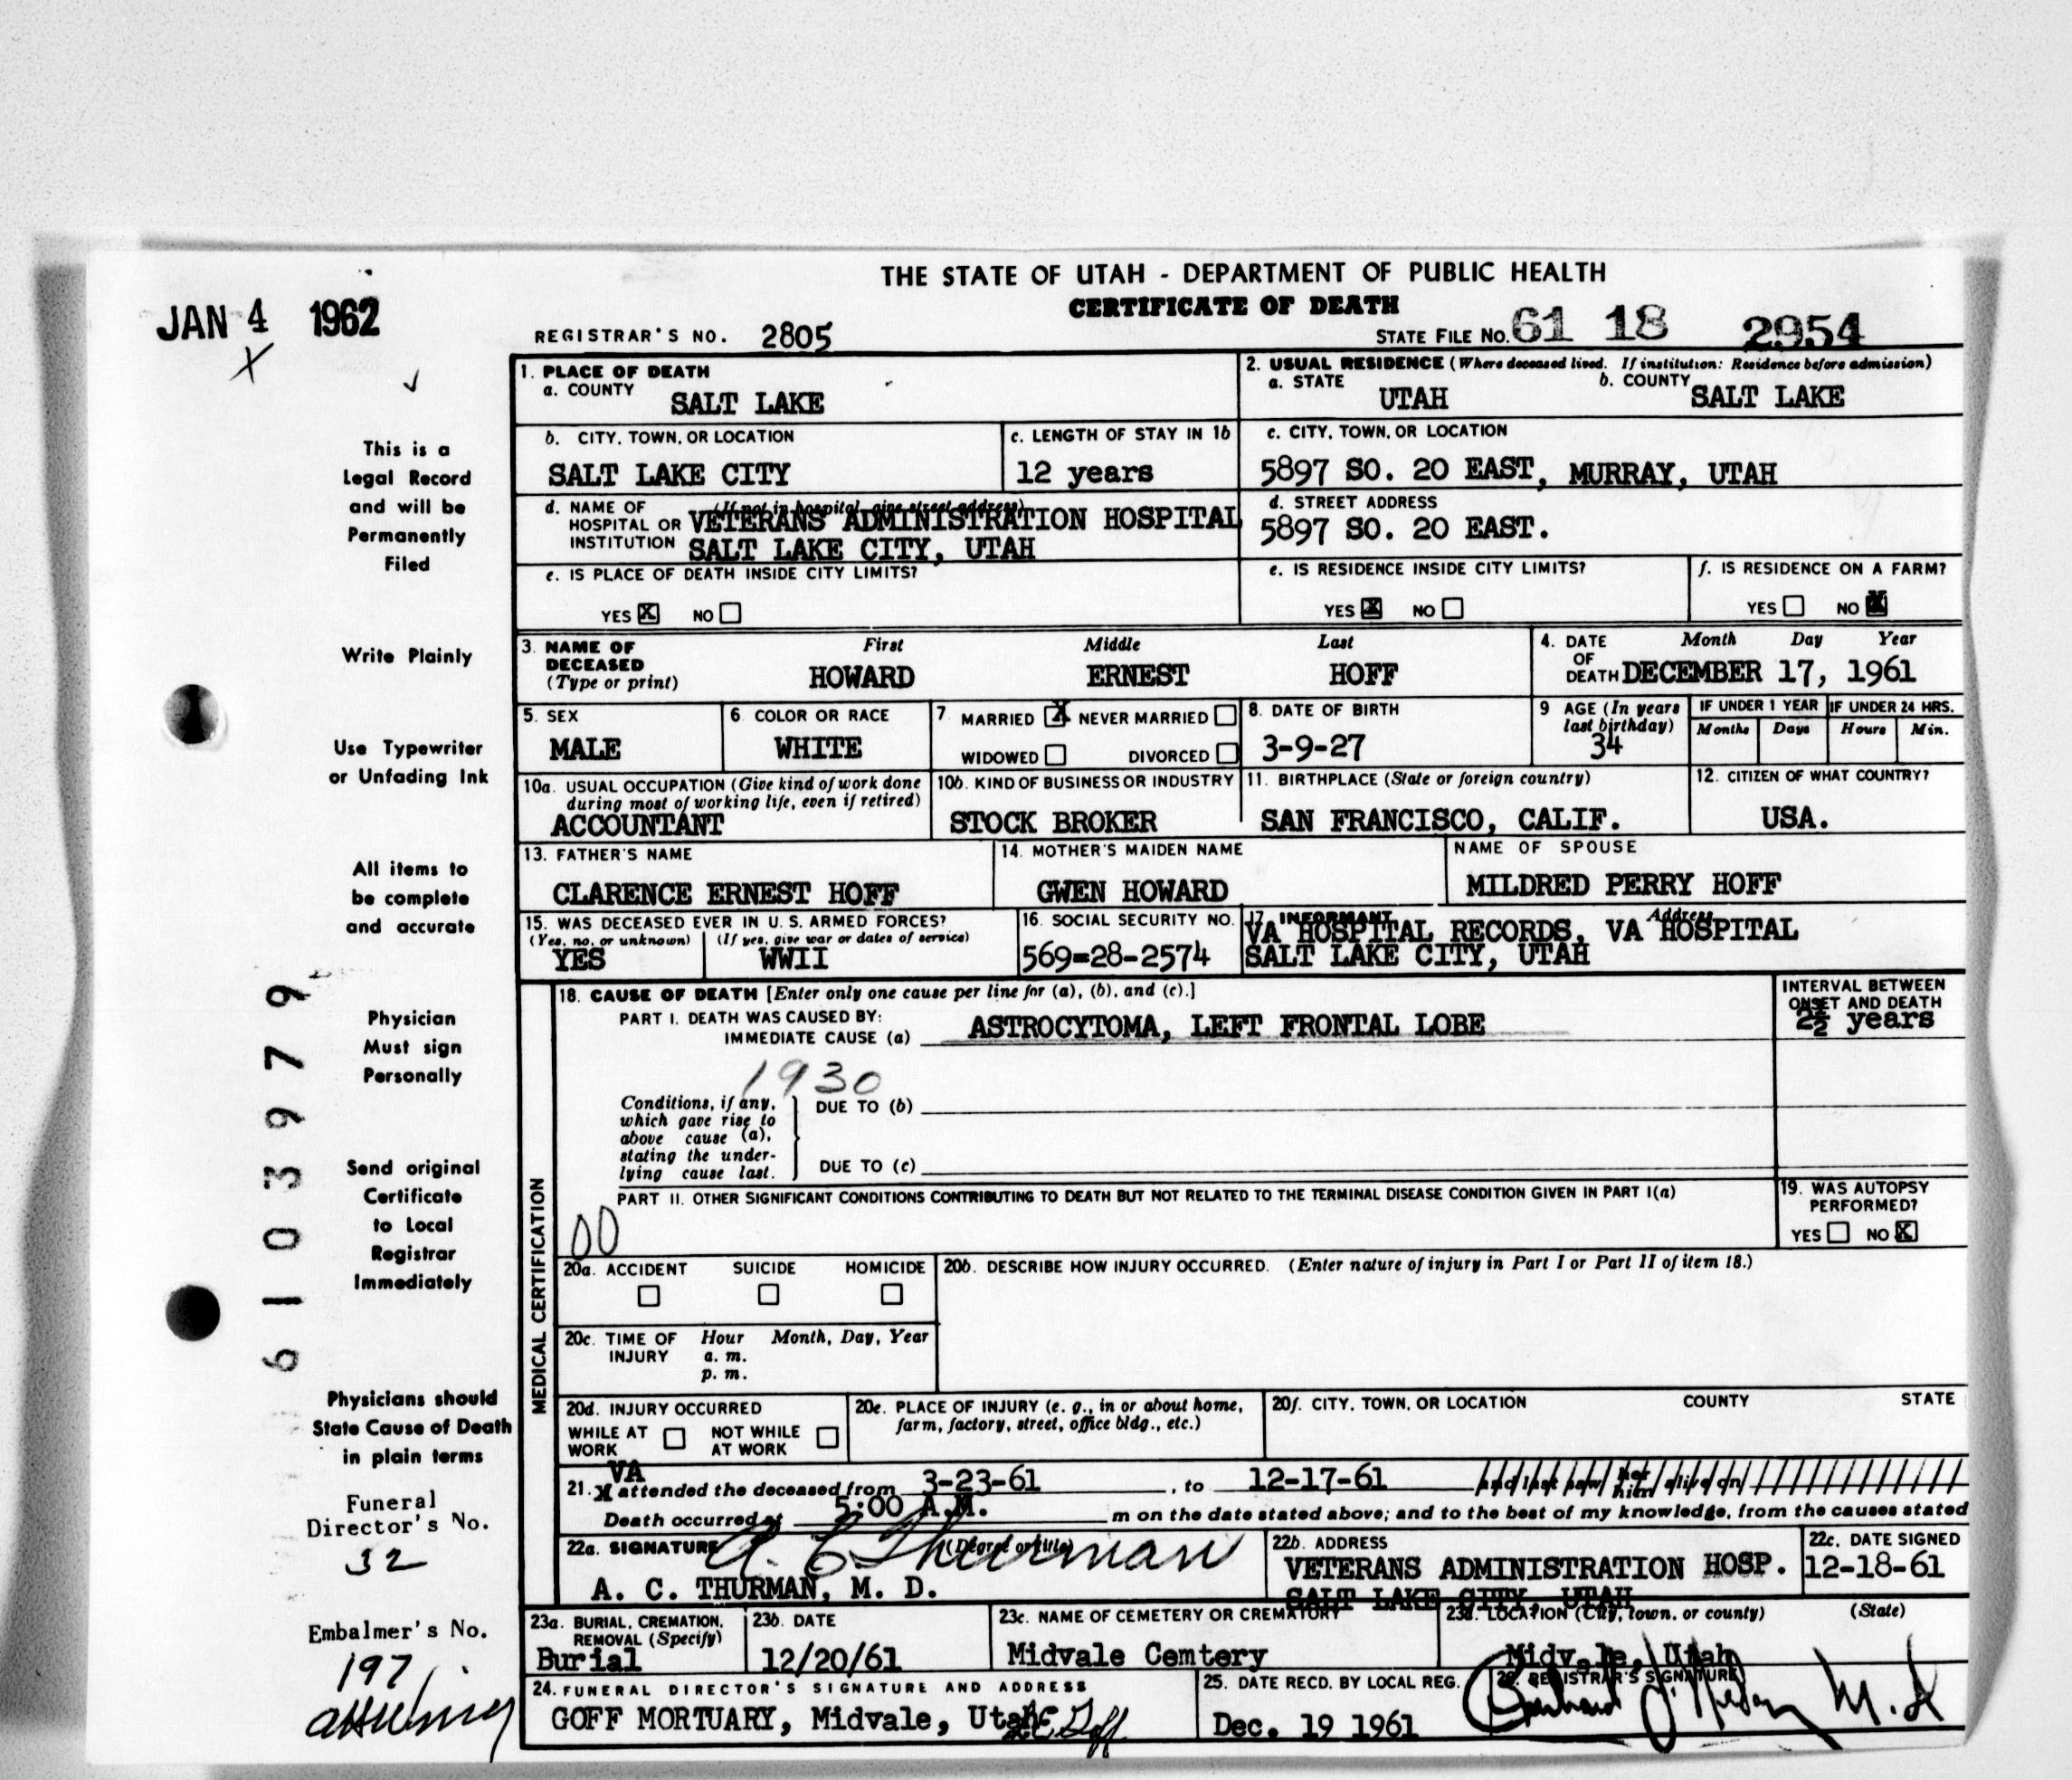 THE STATE OF UTAH - DEPARTMENT OF PUBLIC HEALTH
CERTIFICATE OF DEATH
JAN 4 1962
REGISTRAR'S NO. 2805
STATE FILE NO. 61 18 2954
1. PLACE OF DEATH
a. COUNTY SALT LAKE
2. USUAL RESIDENCE (Where deceased lived. If institution: Residence before admission)
a. STATE UTAH b. COUNTY SALT LAKE
b. CITY, TOWN, OR LOCATION
SALT LAKE CITY
c. LENGTH OF STAY IN 1b
12 years
c. CITY, TOWN, OR LOCATION
5897 SO. 20 EAST, MURRAY, UTAH
d. NAME OF HOSPITAL OR INSTITUTION (If not in hospital, give street address)
VETERANS ADMINISTRATION HOSPITAL
SALT LAKE CITY, UTAH
d. STREET ADDRESS
5897 SO. 20 EAST.
e. IS PLACE OF DEATH INSIDE CITY LIMITS?
YES X NO
e. IS RESIDENCE INSIDE CITY LIMITS?
YES X NO
f. IS RESIDENCE ON A FARM?
YES NO X
3. NAME OF DECEASED (Type or print)
First Middle Last
HOWARD ERNEST HOFF
4. DATE OF DEATH Month Day Year
DECEMBER 17, 1961
5. SEX
MALE
6. COLOR OR RACE
WHITE
7. MARRIED X NEVER MARRIED
WIDOWED DIVORCED
8. DATE OF BIRTH
3-9-27
9 AGE (In years last birthday)
34
IF UNDER 1 YEAR
Months Days
IF UNDER 24 HRS.
Hours Min.
10a. USUAL OCCUPATION (Give kind of work done during most of working life, even if retired)
ACCOUNTANT
10b. KIND OF BUSINESS OR INDUSTRY
STOCK BROKER
11. BIRTHPLACE (State or foreign country)
SAN FRANCISCO, CALIF.
12. CITIZEN OF WHAT COUNTRY?
USA.
13. FATHER'S NAME
CLARENCE ERNEST HOFF
14. MOTHER'S MAIDEN NAME
GWEN HOWARD
NAME OF SPOUSE
MILDRED PERRY HOFF
15. WAS DECEASED EVER IN U. S. ARMED FORCES?
(Yes, no, or unknown) (If yes, give war or dates of service)
YES WWII
16. SOCIAL SECURITY NO.
569-28-2574
17. INFORMANT Address
VA HOSPITAL RECORDS, VA HOSPITAL
SALT LAKE CITY, UTAH
MEDICAL CERTIFICATION
18. CAUSE OF DEATH [Enter only one cause per line for (a), (b), and (c).]
PART I. DEATH WAS CAUSED BY:
IMMEDIATE CAUSE (a) ASTROCYTOMA, LEFT FRONTAL LOBE
INTERVAL BETWEEN ONSET AND DEATH
2½ years
1930
Conditions, if any, which gave rise to above cause (a), stating the underlying cause last.
DUE TO (b)
DUE TO (c)
PART II. OTHER SIGNIFICANT CONDITIONS CONTRIBUTING TO DEATH BUT NOT RELATED TO THE TERMINAL DISEASE CONDITION GIVEN IN PART I(a)
00
19. WAS AUTOPSY PERFORMED?
YES NO X
20a. ACCIDENT SUICIDE HOMICIDE
20b. DESCRIBE HOW INJURY OCCURRED. (Enter nature of injury in Part I or Part II of item 18.)
20c. TIME OF INJURY Hour Month, Day, Year
a. m.
p. m.
20d. INJURY OCCURRED
WHILE AT WORK NOT WHILE AT WORK
20e. PLACE OF INJURY (e. g., in or about home, farm, factory, street, office bldg., etc.)
20f. CITY, TOWN, OR LOCATION COUNTY STATE
VA
21. X attended the deceased from 3-23-61, to 12-17-61 and last saw her him alive on
Death occurred at 5:00 A.M. m on the date stated above; and to the best of my knowledge, from the causes stated
22a. SIGNATURE (Degree or title)
A C Thurman
A. C. THURMAN, M. D.
22b. ADDRESS
VETERANS ADMINISTRATION HOSP.
SALT LAKE CITY, UTAH
22c. DATE SIGNED
12-18-61
23a. BURIAL, CREMATION, REMOVAL (Specify)
Burial
23b. DATE
12/20/61
23c. NAME OF CEMETERY OR CREMATORY
Midvale Cemtery
23d. LOCATION (City, town, or county) (State)
Midvale, Utah
24. FUNERAL DIRECTOR'S SIGNATURE AND ADDRESS
GOFF MORTUARY, Midvale, Utah
25. DATE RECD. BY LOCAL REG.
Dec. 19 1961
26. REGISTRAR'S SIGNATURE
This is a
Legal Record
and will be
Permanently
Filed
Write Plainly
Use Typewriter
or Unfading Ink
All items to
be complete
and accurate
Physician
Must sign
Personally
Send original
Certificate
to Local
Registrar
Immediately
Physicians should
State Cause of Death
in plain terms
Funeral
Director's No.
32
Embalmer's No.
197
6103979